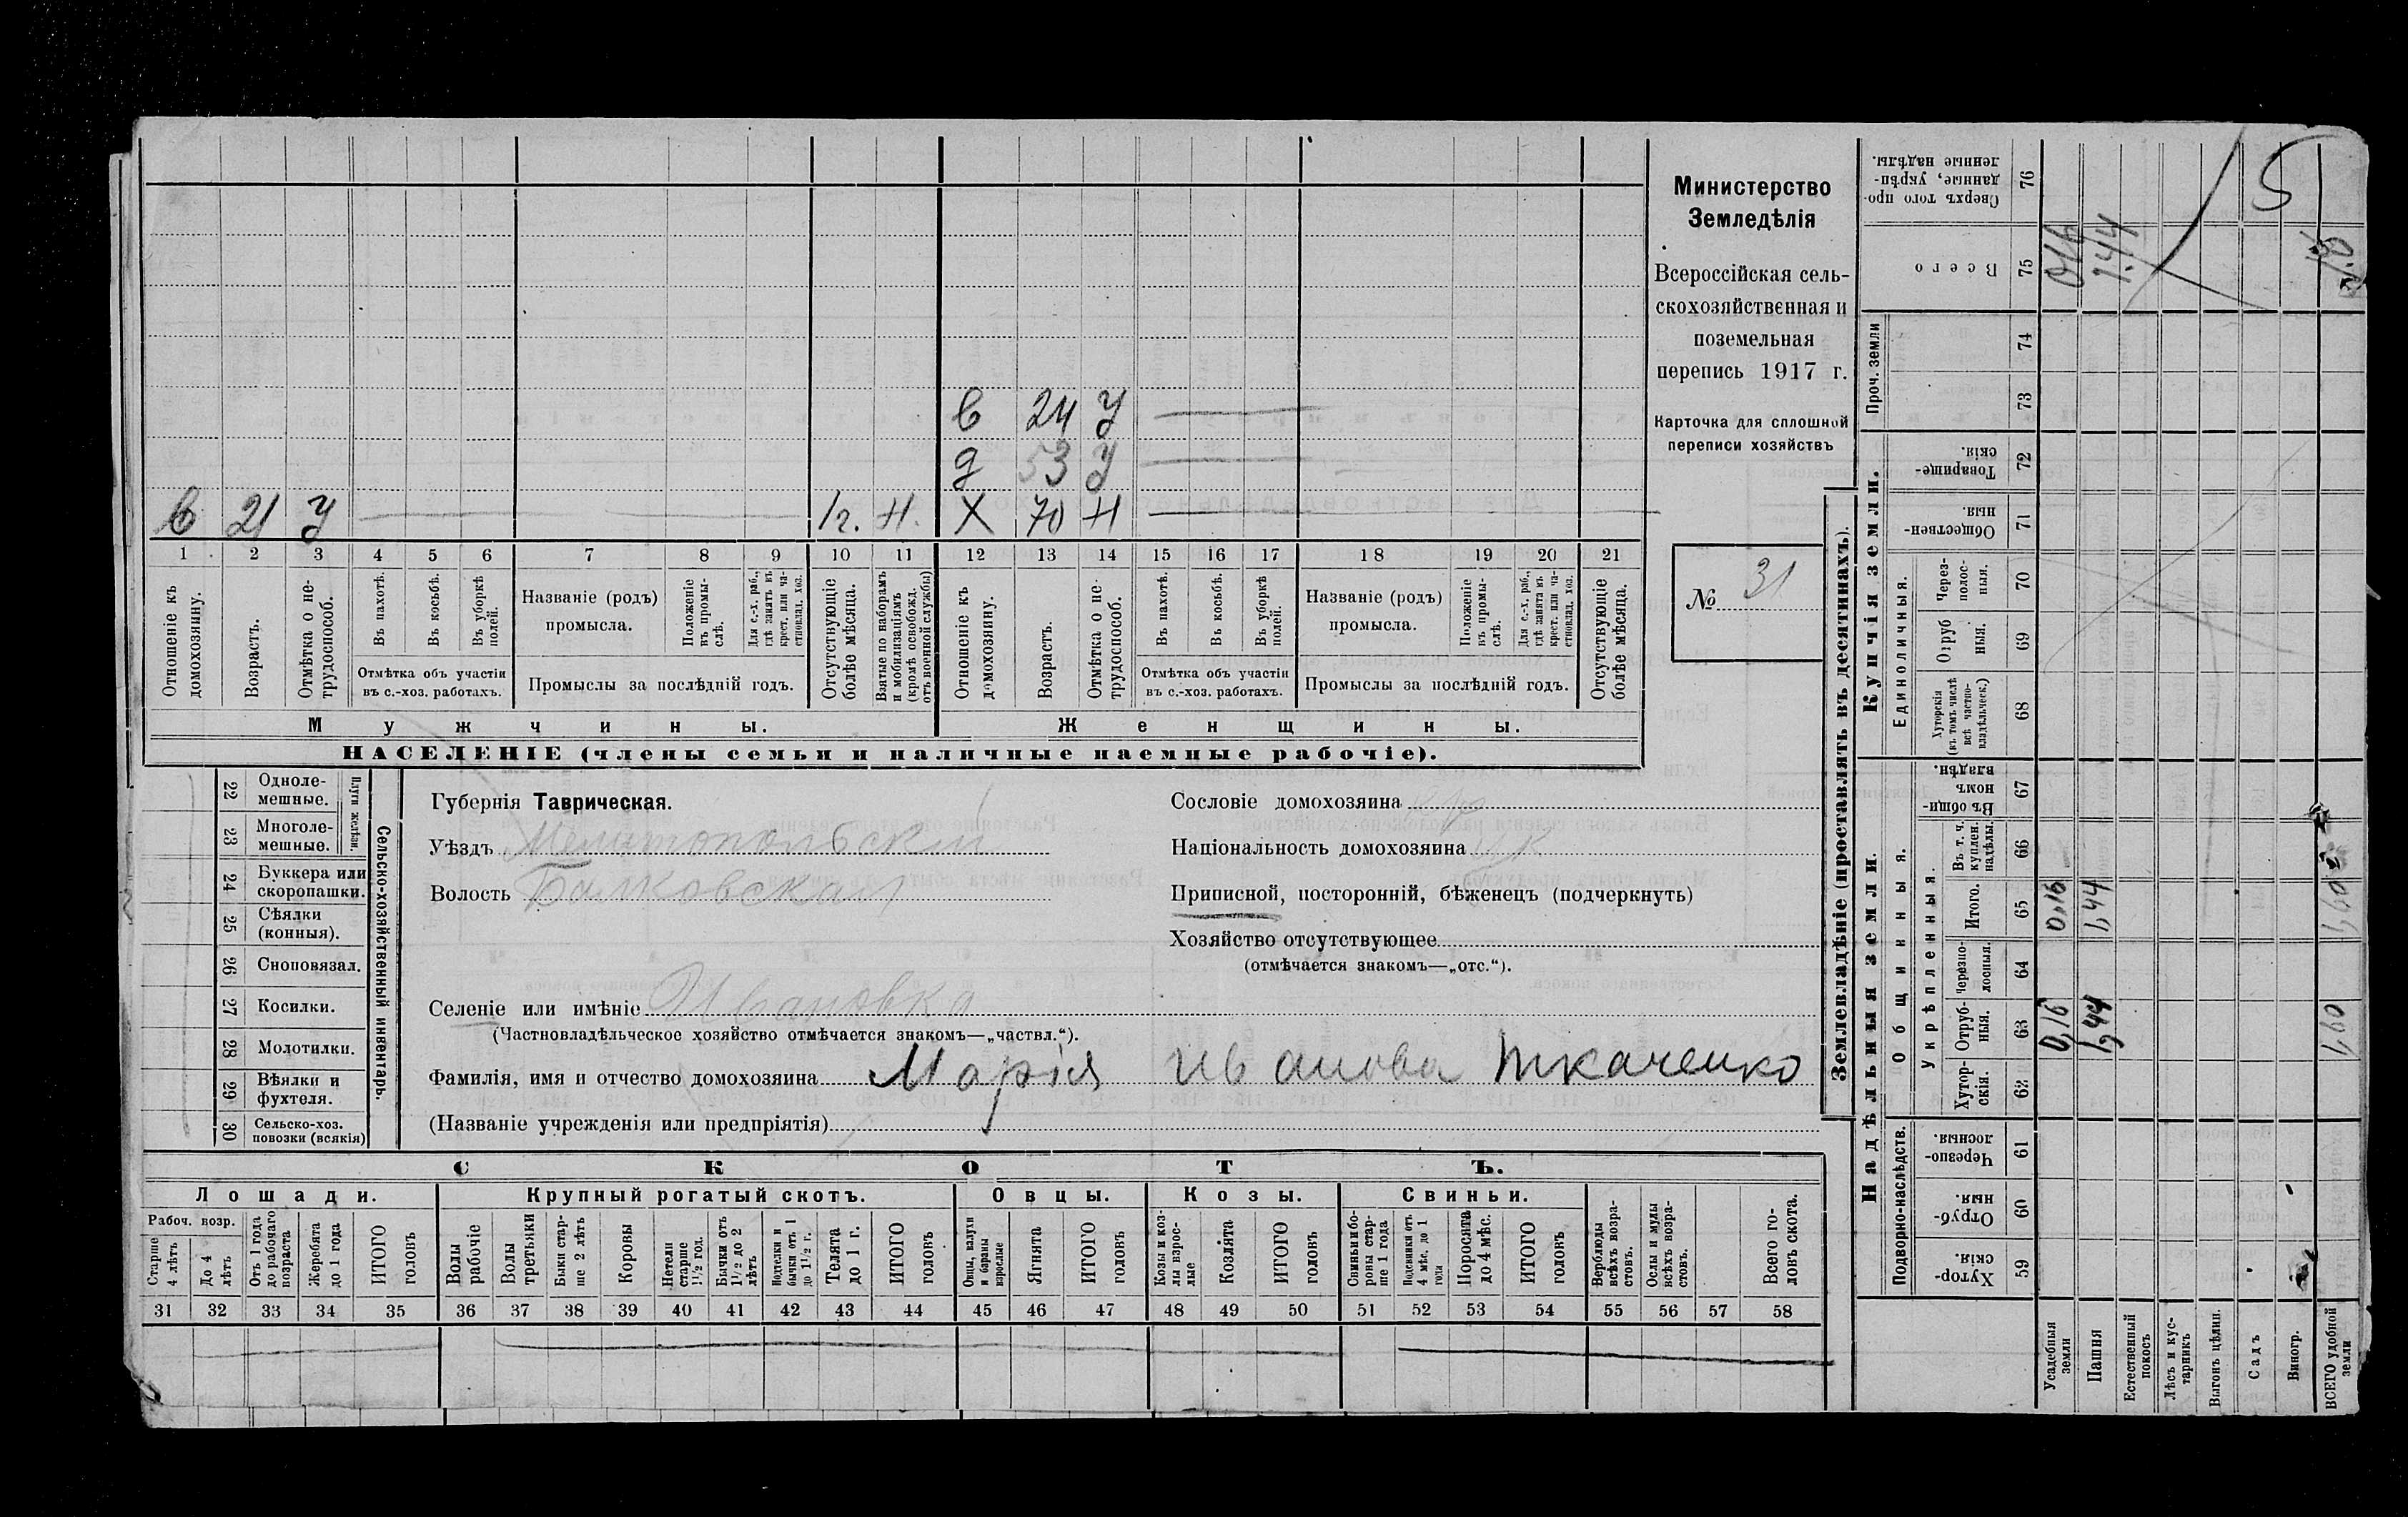 в 24 У
д 53 У
в 21 У 1г. Н. Х 70 Н
1 2 3 4 5 6 7 8 9 10 11 12 13 14 15 16 17 18 19 20 21
Отношеніе къ домохозяину.
Возрастъ.
Отмѣтка о не-трудоспособ.
Въ пахотѣ.
Въ косьбѣ.
Въ уборкѣ полей.
Отмѣтка объ участіи
въ с.-хоз. работахъ.
Названіе (родъ)
промысла.
Положеніе въ промы-слѣ.
Для с.-х. раб., гдѣ занятъ въ крест. или ча-стновлад. хоз.
Промыслы за послѣдній годъ.
Отсутствующіе болѣе мѣсяца.
Взятые по наборамъ и мобилизаціямъ (кромѣ освобожд. отъ военной службы)
Отношеніе къ домохозяину.
Возрастъ.
Отмѣтка о не-трудоспособ.
Въ пахотѣ.
Въ косьбѣ.
Въ уборкѣ полей.
Отмѣтка объ участіи
въ с.-хоз. работахъ.
Названіе (родъ)
промысла.
Положеніе въ промы-слѣ.
Для с.-х. раб., гдѣ занята въ крест. или ча-стновлад. хоз.
Промыслы за послѣдній годъ.
Отсутствующіе болѣе мѣсяца.
Мужчины.
Женщины.
НАСЕЛЕНІЕ (члены семьи и наличные наемные рабочіе).
Министерство
Земледѣлія
Всероссійская сель-
скохозяйственная и
поземельная
перепись 1917 г.
Карточка для сплошной
переписи хозяйствъ
№ 31
22 Одноле-мешные.
23 Многоле-мешные.
Плуги желѣзн.
24 Буккера или скоропашки.
25 Сѣялки (конныя).
26 Сноповязал.
27 Косилки.
28 Молотилки.
29 Вѣялки и фухтеля.
30 Сельско-хоз. повозки (всякія)
Сельско-хозяйственный инвентарь.
Губернія Таврическая.
Уѣздъ Мелитопольскій
Волость Балковская
Селеніе или имѣніе Ивановка
(Частновладѣльческое хозяйство отмѣчается знакомъ—„частвл.“).
Фамилія, имя и отчество домохозяина Марія Иванова Ткаченко
(Названіе учрежденія или предпріятія)
Сословіе домохозяина
Національность домохозяина
Приписной, посторонній, бѣженецъ (подчеркнуть)
Хозяйство отсутствующее
(отмѣчается знакомъ—„отс.“).
СКОТЪ.
Лошади.
Крупный рогатый скотъ.
Овцы.
Козы.
Свиньи.
Рабоч. возр.
Старше 4 лѣтъ
До 4 лѣтъ
Отъ 1 года до рабочаго возраста
Жеребята до 1 года
ИТОГО головъ
Волы рабочіе
Волы третьяки
Быки стар-ше 2 лѣтъ
Коровы
Нетели старше 1½ год.
Бычки отъ 1½ до 2 лѣтъ
Подтелки и бычки отъ 1 до 1½ г.
Телята до 1 г.
ИТОГО головъ
Овцы, валухи и бараны взрослые
Ягнята
ИТОГО головъ
Козы и коз-лы взрос-лые
Козлята
ИТОГО головъ
Свиньи и бо-ровы стар-ше 1 года
Подсвинки отъ 4 мѣс. до 1 года
Поросята до 4 мѣс.
ИТОГО головъ
Верблюды всѣхъ возра-стовъ.
Ослы и мулы всѣхъ возра-стовъ.
Всего го-ловъ скота.
31 32 33 34 35 36 37 38 39 40 41 42 43 44 45 46 47 48 49 50 51 52 53 54 55 56 57 58
Землевладѣніе (проставлять въ десятинахъ).
Надѣльныя земли.
Купчія земли.
Проч. земли
Подворно-наслѣдств.
Общинныя.
Укрѣпленныя.
Единоличныя.
Хутор-скія. 59
Отруб-ныя. 60
Черезпо-лосныя. 61
Хутор-скія. 62
Отруб-ныя. 63
Черезпо-лосныя. 64
Итого. 65
Въ т. ч. куплен. надѣлы. 66
Въ общи-номъ владѣн. 67
Хуторскія (въ томъ числѣ всѣ частно-владѣльческ.) 68
Отруб ныя. 69
Через-полос-ныя. 70
Обществен-ныя. 71
Товарище-скія. 72
73
74
Всего 75
Сверхъ того про-данные, укрѣп-ленные надѣлы. 76
Усадебныя земли 0,16 0,16 0,16
Пашня 1,44 1,44 1.44
Естественный покосъ
Лѣсъ и кус-тарникъ
Выгонъ цѣлин.
Садъ
Виногр.
ВСЕГО удобной земли 1,60 1,60
5